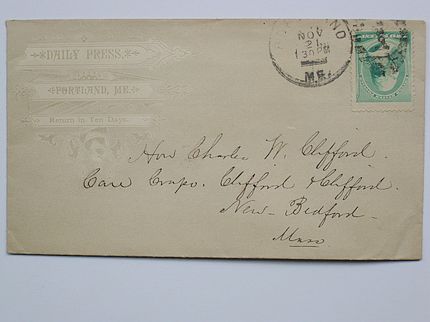 DAILY PRESS.
PORTLAND, ME.
Return in Ten Days.
NOV
21
30 PM
ME.
Hon Charles W. Clifford.
Care Crapo. Clifford & Clifford.
New-Bedford-
Mass.